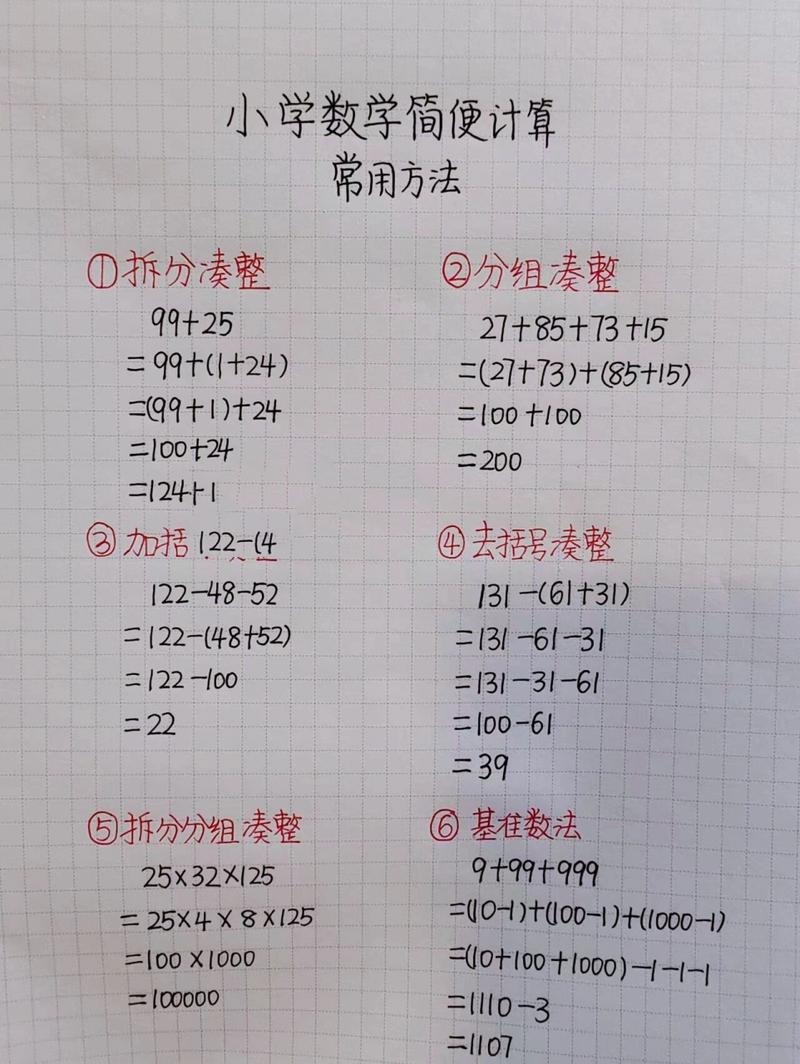 小学数学简便计算
常用方法
①拆分凑整
99+25
=99+(1+24)
=(99+1)+24
=100+24
=124+1
②分组凑整
27+85+73+15
=(27+73)+(85+15)
=100+100
=200
③加括122-(4
122-48-52
=122-(48+52)
=122-100
=22
④去括号凑整
131-(61+31)
=131-61-31
=131-31-61
=100-61
=39
⑤拆分分组凑整
25×32×125
=25×4×8×125
=100×1000
=100000
⑥基准数法
9+99+999
=(10-1)+(100-1)+(1000-1)
=(10+100+1000)-1-1-1
=1110-3
=1107